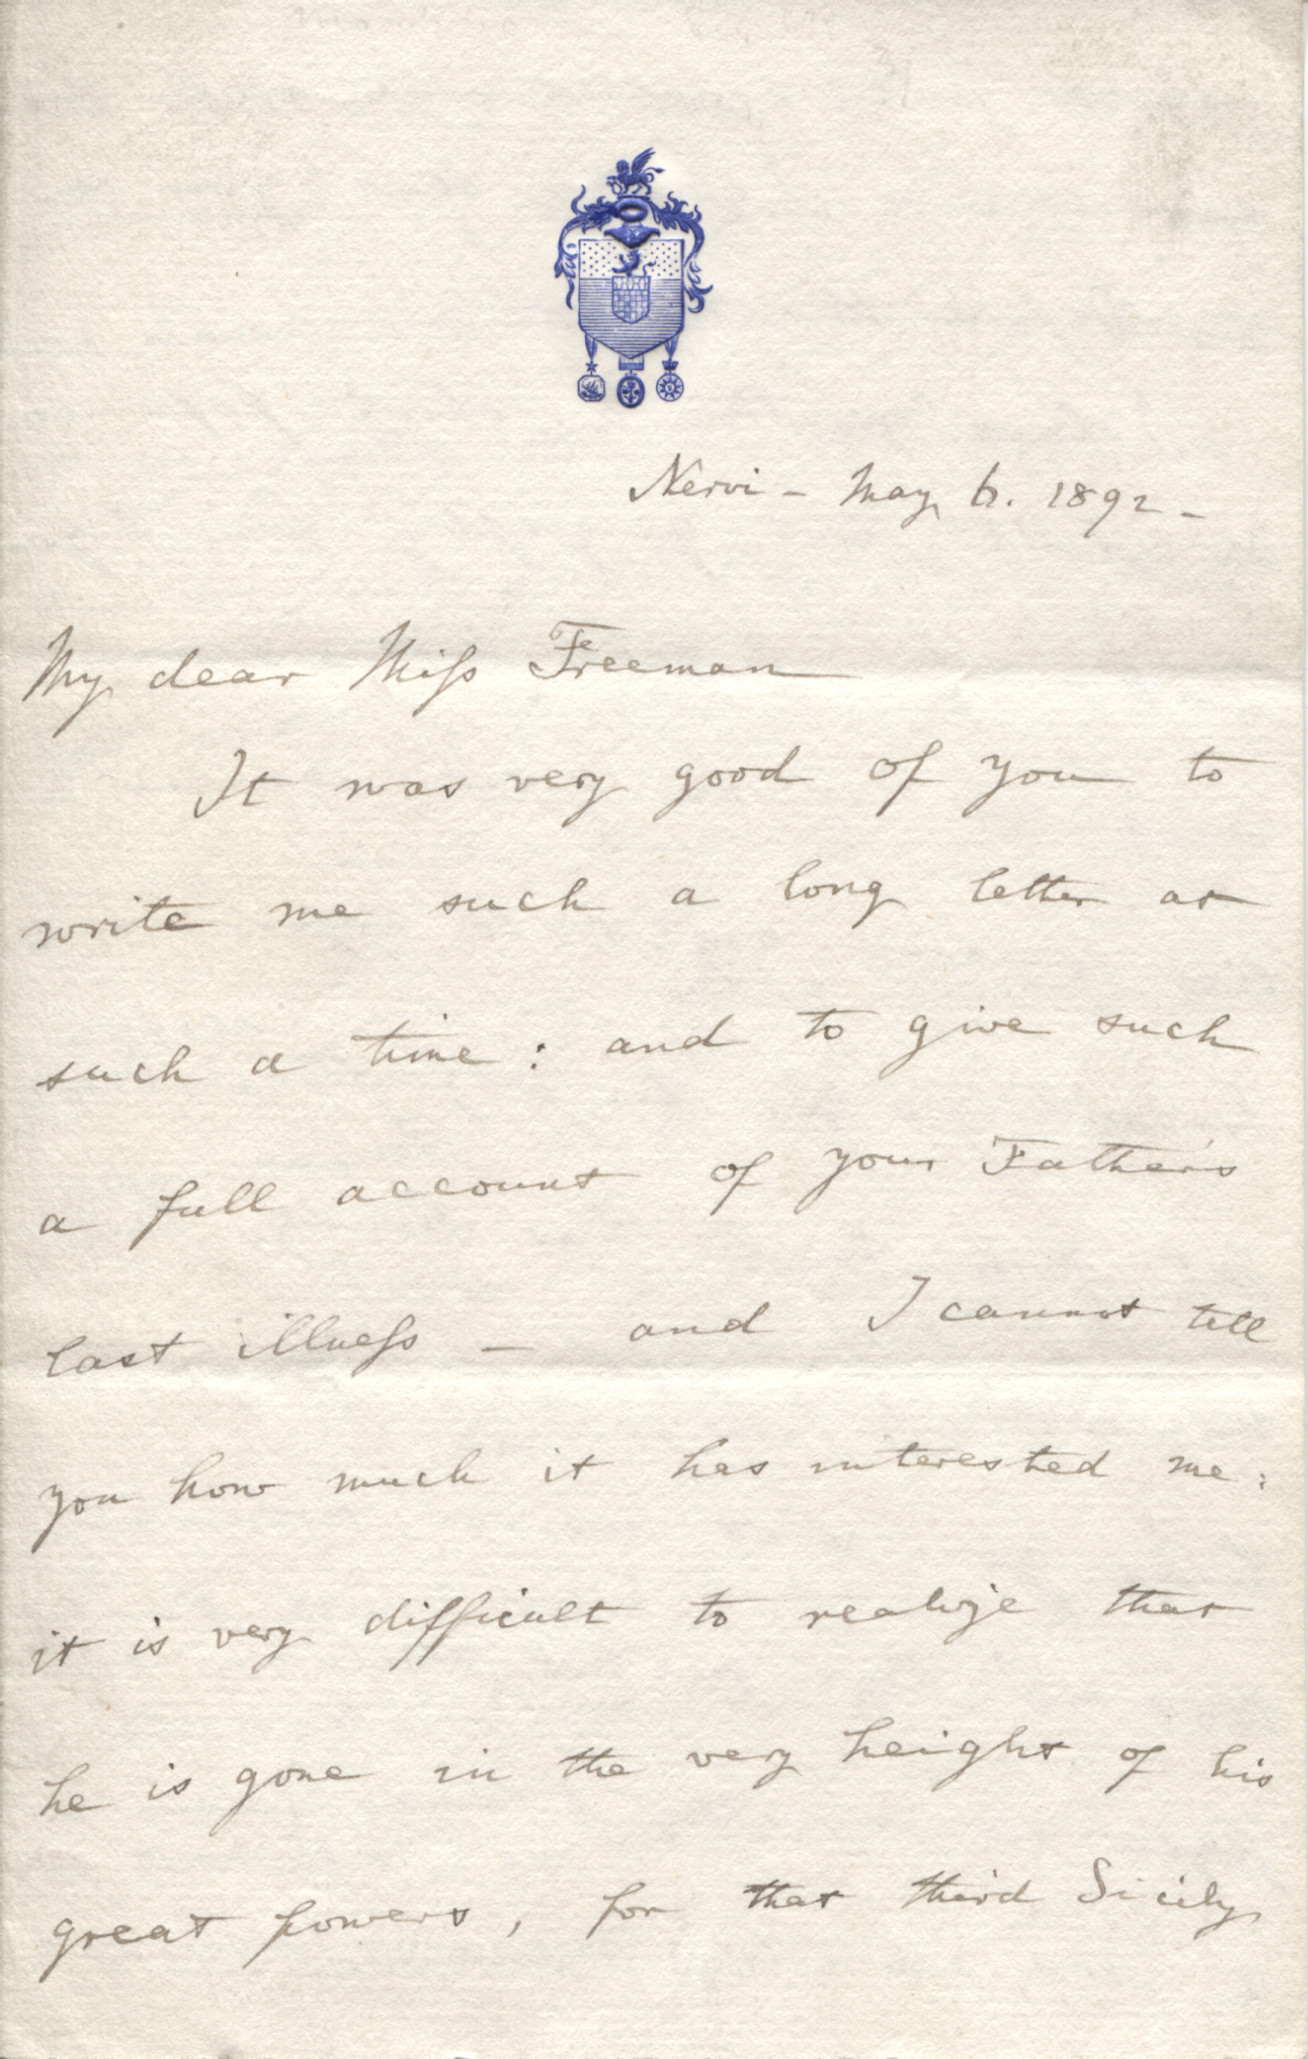 Nervi - May 6. 1892 -
My dear Miſs Freeman
It was very good of you to
write me such a long letter at
such a time : and to give such
a full account of your Father's
last illneſs - and I cannot tell
you how much it has interested me :
it is very difficult to realize that
he is gone in the very height of his
great powers, for that third Sicily